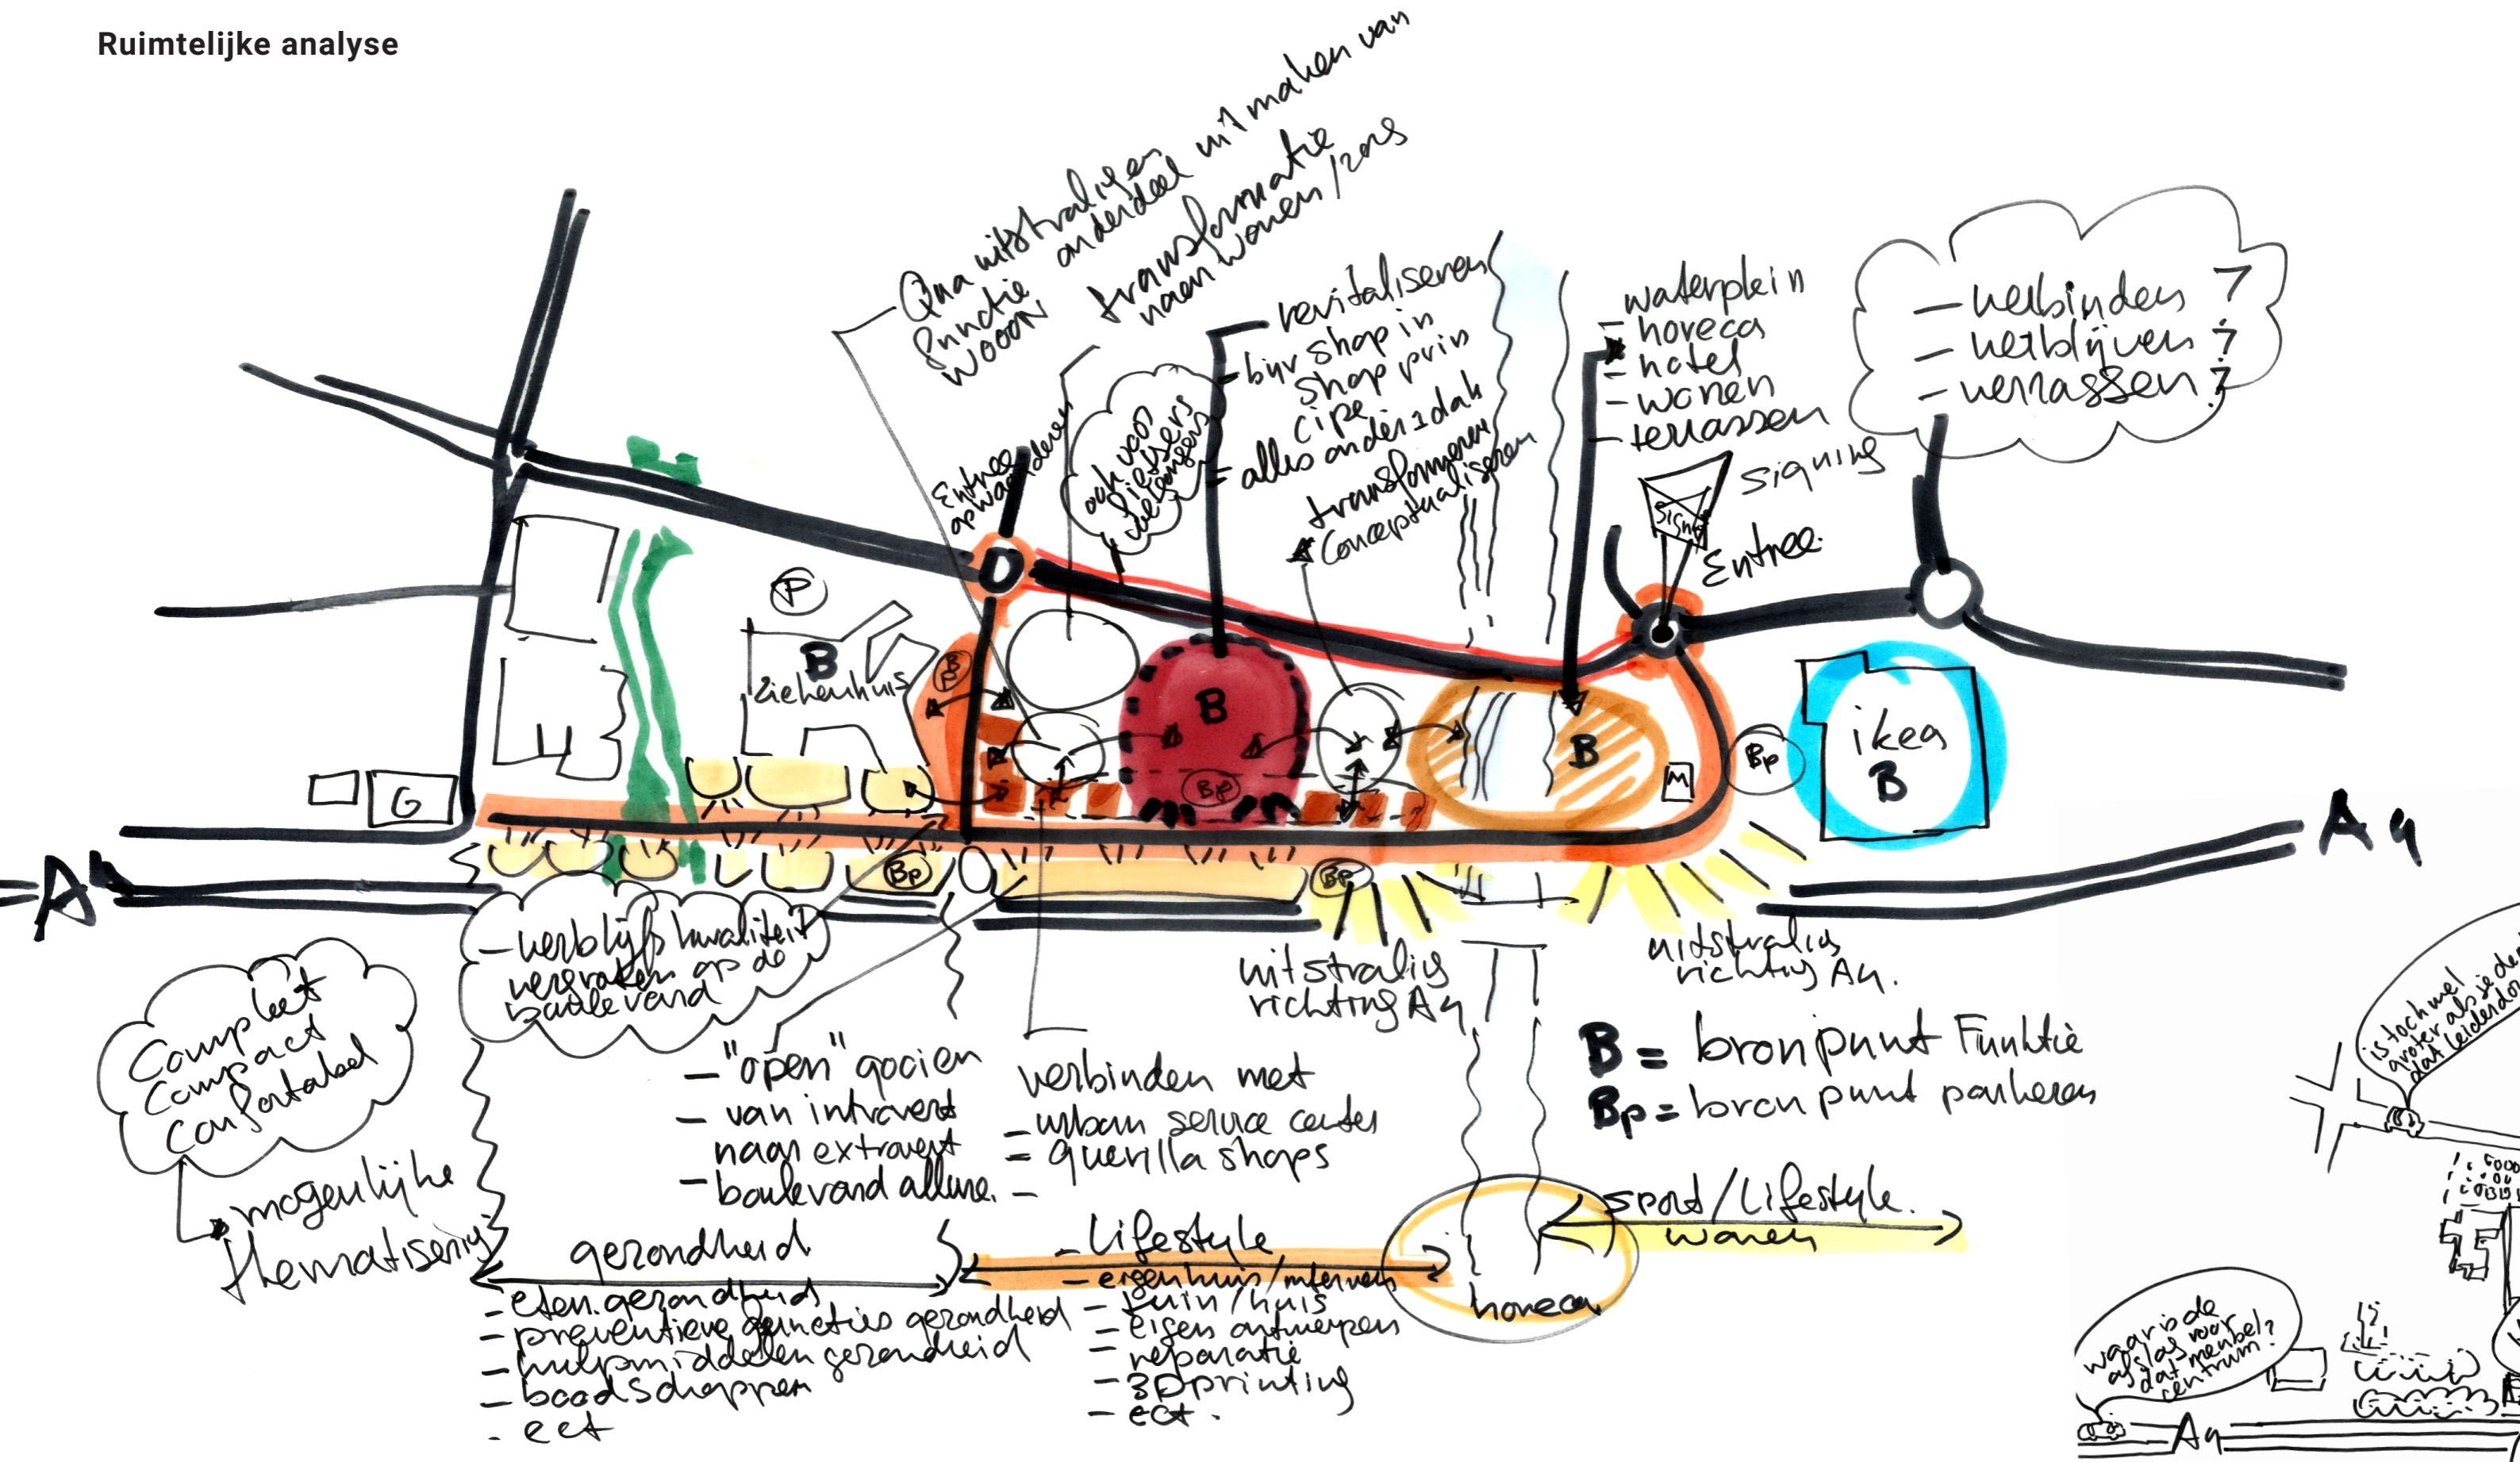 Ruimtelijke analyse
Qua uitstralingen
functie onderdeel uit maken van
WOOON
transformatie
naar wonen/zorg
revitaliseren
- bijv shop in
shop prin
cipe
= alles onder 1 dak
transformeren
Conceptualiseren
waterplein
- horeca
- hotel
- wonen
- terrassen
- verbinden ?
- verblijven ?
- verrassen ?
Entree
opwaarderen
ook voor
fietsers
signing
Entree
P
B
ziekenhuis
B
P
D
B
Bp
B
M
Bp
ikea
B
G
Bp
Bp
A4
A4
- verblijfs kwaliteit
vergroten op de
boulevard
Compleet
Compact
Confortabel
mogenlijke
thematisering
- "open" gooien
- van introvert
naar extrovert
- boulevard allure.
verbinden met
- urban service center
= guerilla shops
-
uitstraling
richting A4
uitstraling
richting A4.
B = bronpunt Funktie
Bp = bron punt parkeren
gezondheid
- eten.gezondheid
- preventieve functies gezondheid
- hulpmiddelen gezondheid
- boodschappen
- ect
- Lifestyle
- eigenhuis/interieur
- tuin/huis
- eigen ontwerpen
- reparatie
- 3D printing
- ect.
horeca
sport/Lifestyle.
wonen
is toch wel
groter als je de
dat leiderdo
waar is de
afslag voor
dat meubel
centrum?
A4